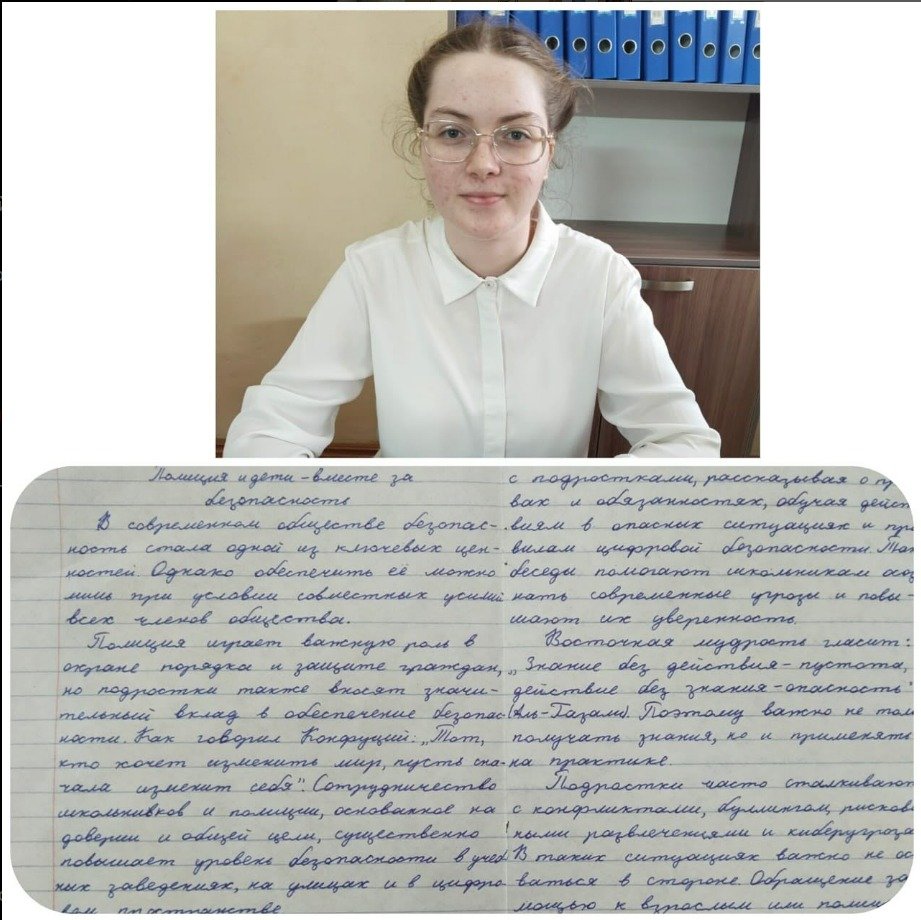 Полиция и дети – вместе за
безопасность
В современном обществе безопас-
ность стала одной из ключевых цен-
ностей. Однако обеспечить её можно
лишь при условии совместных усилий
всех членов общества.
Полиция играет важную роль в
охране порядка и защите граждан,
но подростки также вносят значи-
тельный вклад в обеспечение безопас-
ности. Как говорил Конфуций: „Тот,
кто хочет изменить мир, пусть сна-
чала изменит себя". Сотрудничество
школьников и полиции, основанное на
доверии и общей цели, существенно
повышает уровень безопасности в учеб
ных заведениях, на улицах и в цифро
вом пространстве
с подростками, рассказывая о пр
вах и обязанностях, обучая дейст
виям в опасных ситуациях и пра
вилам цифровой безопасности. Так
беседы помогают школьникам осоз
нать современные угрозы и повы-
шают их уверенность.
Восточная мудрость гласит:
„Знание без действия – пустота,
действие без знания – опасность"
(Аль-Газали). Поэтому важно не тол
получать знания, но и применять
на практике.
Подростки часто сталкивают
с конфликтами, буллингом, рискован
ными развлечениями и киберугроза
В таких ситуациях важно не ос
ваться в стороне. Обращение за
мощью к взрослым или полиц